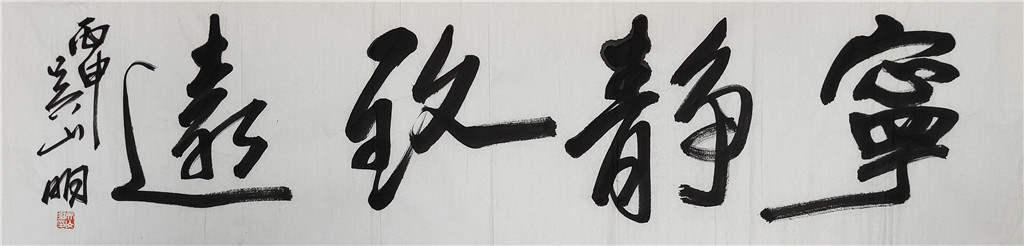 寧靜致遠
丙申吳山明